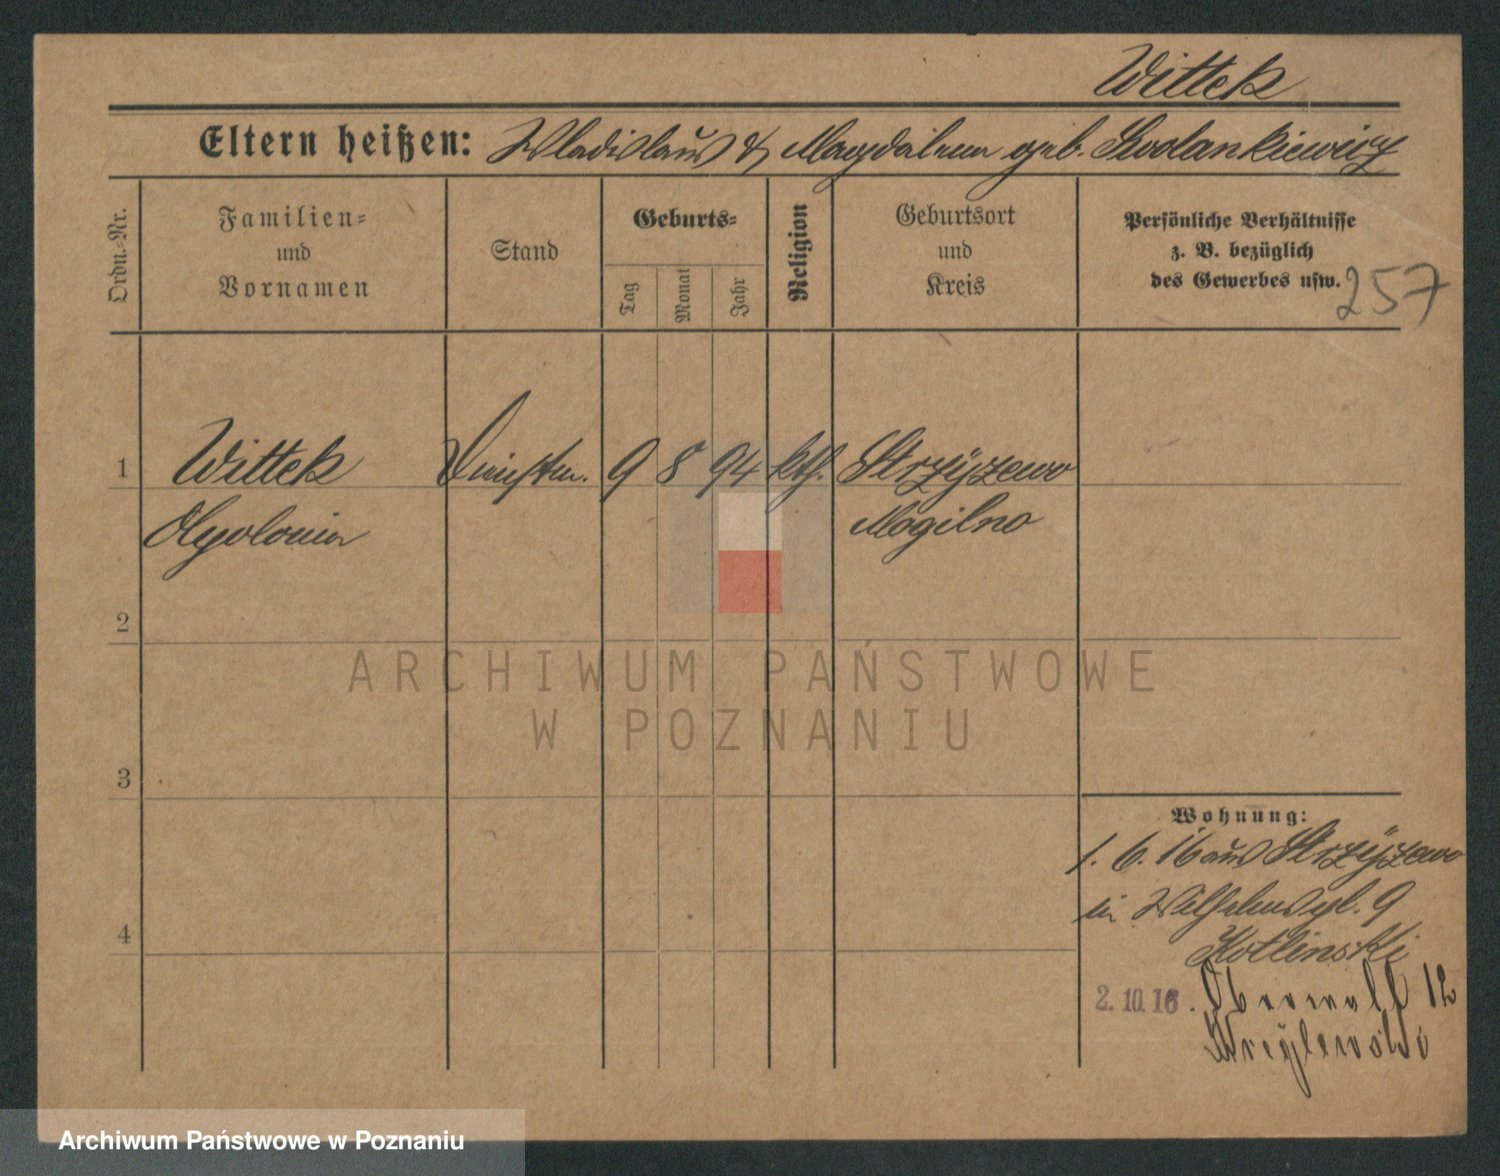 Wittek
Eltern heißen: Wladislaus & Magdalena geb.
Ordn.-Nr.
Familien-
und
Vornamen
Stand
Geburts-
Tag
Monat
Jahr
Religion
Geburtsort
und
Kreis
Persönliche Verhältnisse
z. B. bezüglich
des Gewerbes usw.
257
1 Wittek 9 8 94 kth. Strzyżewo
Apolonia Mogilno
2
3
4
Wohnung:
1. 6. 16 aus Strzyżewo
in 9
Kotlinski
2. 10. 16. Oberwall 12
ARCHIWUM PAŃSTWOWE
W POZNANIU
Archiwum Państwowe w Poznaniu